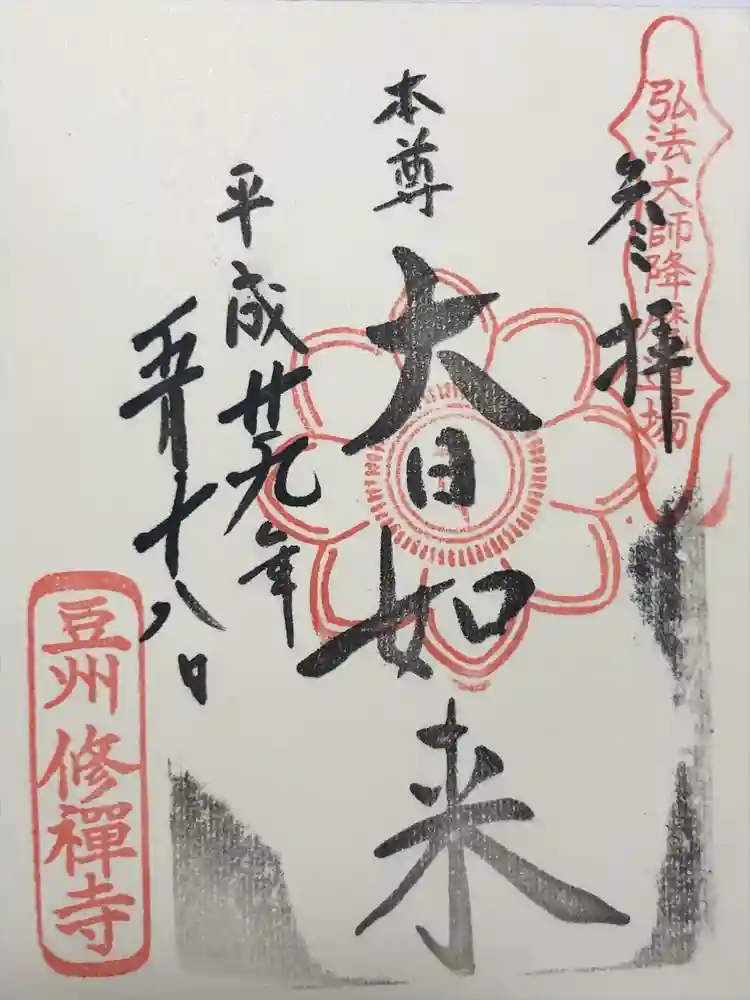 弘法大師降魔道場
参拝
本尊
大日如来
平成廿九年
五月十八日
豆州修禅寺